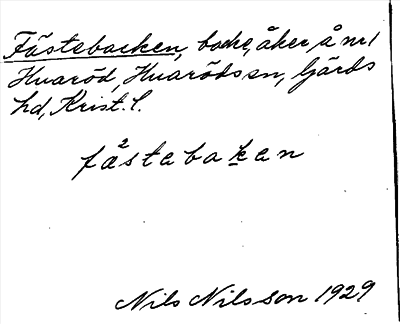 Fästebacken, backe, åker, å nr 1
Hvaröd, Hvaröds sn, Gärds
hd, Krist. l.
fä²stabakan
Nils Nilsson 1929